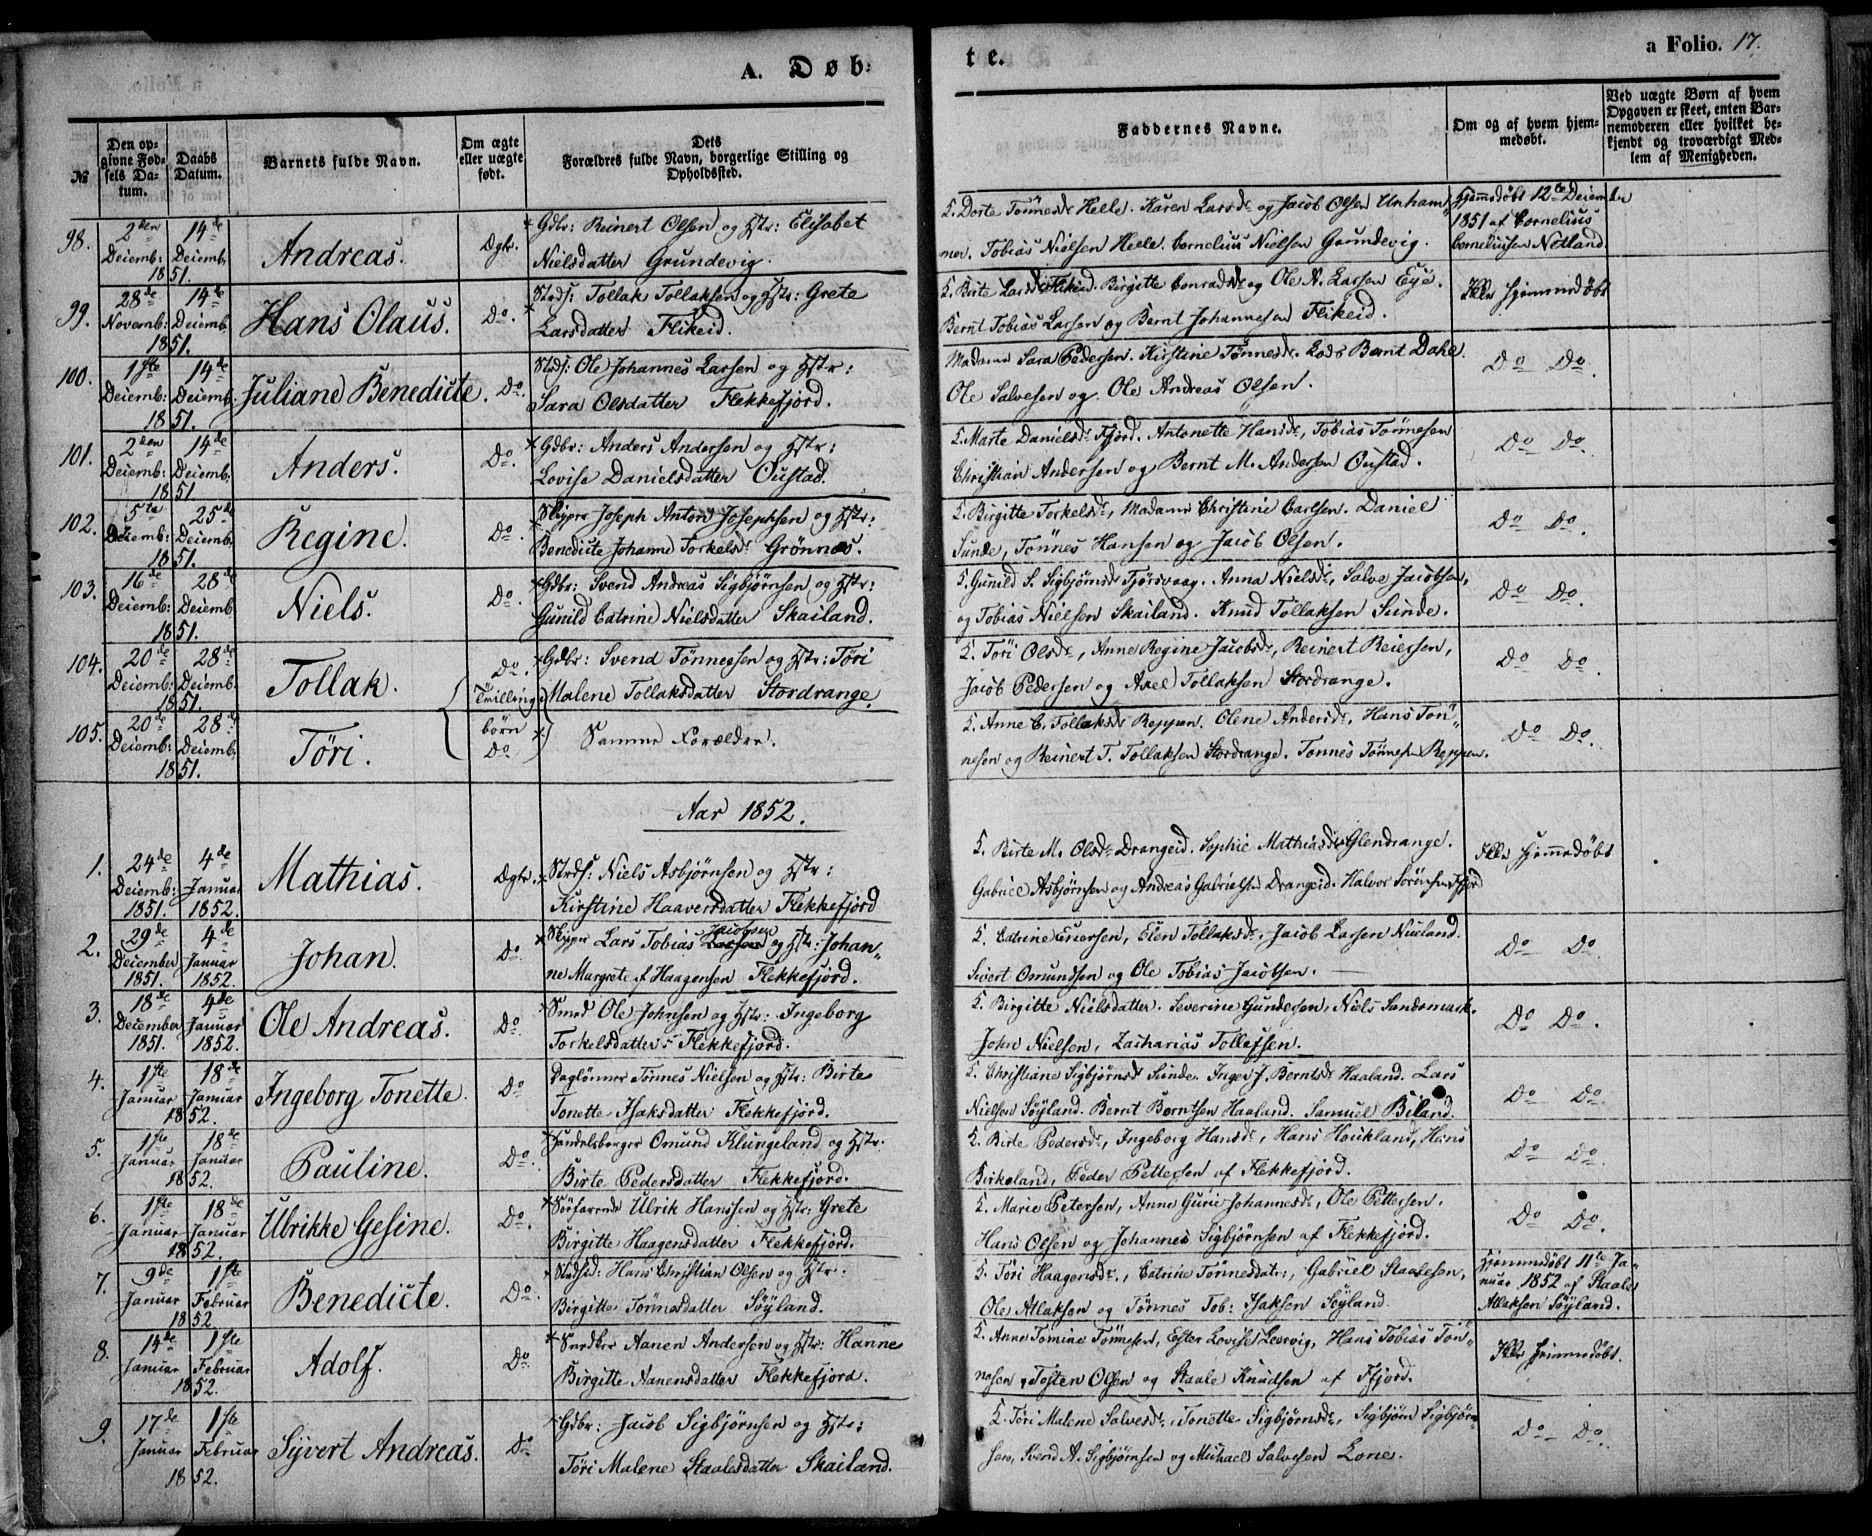 A. Døb-
te.
a Folio. 17.
№
Den opgivne Fødsels Datum.
Daabs Datum.
Barnets fulde Navn.
Om ægte eller uægte født.
Dets Forældres fulde Navn, borgerlige Stilling og Opholdssted.
Faddernes Navne.
Om og af hvem hjemmedøbt.
Ved uægte Børn af hvem Opgaven er skeet, enten Barnemoderen eller hvilket bekjendt og troværdigt Medlem af Menigheden.
98. 2den Deiemb: 1851. 14de Deiemb. Andreas. Ægte. Gdbr: Reinert Olsen og Hstr: Elisabet
Nielsdatter Grundevig.
Dorte Tönnesdr Helle. Karen Larsdr og Jacob Olsen Unham-
mer. Tobias Nielsen Helle. Cornelius Nielsen Grundevig.
Hjemmedøbt 12te Deiember
1851 af Cornelius
Corneliusen Netland
99. 28de Novemb: 1851. 14de Deiemb. Hans Olaus. Do. Strds: Tollak Tollaksen og Hstr: Grete
Larsdatter Flikeid.
Birte Larsdr Flikeid. Birgitte Conradsdr og Ole N. Larsen Eye.
Bernt Tobias Larsen og Bernt Johannesen Flikeid.
Ikke hjemmedøbt
100. 1ste Deiemb: 1851. 14de Deiemb. Juliane Benedicte. Do. Strds: Ole Johannes Larsen og Hstr:
Sara Olsdatter Flekkefjord.
Madame Sara Pedersen. Kirstine Tönnesdr. Lods Bernt Dahl.
Ole Salvesen og Ole Andreas Olsen.
Do Do.
101. 2den Deiemb: 1851. 14de Deiemb: Anders. Do. Gdbr: Anders Andersen og Hstr:
Lovise Danielsdatter Oustad.
Marte Danielsdr Fjord. Antonette Hansdr, Tobias Tönnesen
Christian Andersen og Bernt M. Andersen Oustad.
Do Do.
102. 5te Deiemb: 1851. 25de Deiemb. Regine. Do. Skipper Joseph Anton Josephsen og Hstr:
Benedicte Johanne Torkelsdr Grönnes.
Birgitte Torkelsdr, Madame Christine Carlsen. Daniel
Sunde, Tönnes Hansen og Jacob Olsen.
Do Do.
103. 16de Deiemb: 1851. 28de Deiemb. Niels. Do. Gdbr: Svend Andreas Sigbjörnsen og Hstr:
Gunild Catrine Nielsdatter Skailand.
Gunild S. Sigbjörnsdr Tjörsvaag. Anna Nielsdr, Salve Jacobsen,
og Tobias Nielsen Skailand. Knud Tollaksen Sunde.
Do Do.
104. 20de Deiemb: 1851. 28de Deiemb. Tollak. Do. Tvilling Gdbr: Svend Tönnessen og Hstr: Töri
Malene Tollaksdatter Stordrange.
Töri Olsdr, Anne Regine Jacobsdr, Reinert Reiersen,
Jacob Pedersen og Axel Tollaksen Stordrange.
Do Do.
105. 20de Deiemb: 1851. 28de Deiemb. Töri. börn Do. Samme Forældre.
Anne C. Tollaksdr Reppen. Olene Andersdr. Hans Tön-
nesen og Reinert T. Tollaksen Stordrange. Tönnes Tönnesen Reppen.
Do Do.
Aar 1852.
1. 24de Deiemb: 1851. 4de Januar 1852. Mathias. Ægte. Strds: Niels Asbjørnsen og Hstr:
Kirstine Haaversdatter Flekkefjord
Birte M. Olsdr Drangeid. Sophie Mathiasdr Glendrange.
Gabriel Asbjørnsen og Andreas Gabrielsen Drangeid. Halvor Sörensen Fjord
Ikke hjemmedøbt
2. 29de December 1851. 4de Januar 1852. Johan. Do. Skipper Lars Tobias Larsen Jacobsen og Hstr: Johan-
ne Margrete f. Haagensen Flekkefjord.
Catrine Eiersen, Elen Tollaksdr, Jacob Larsen Nuland.
Sivert Omundsen og Ole Tobias Jacobsen.
Do Do
3. 18de December 1851. 4de Januar 1852. Ole Andreas. Do. Smed Ole Johnsen og Hstr: Ingeborg
Torkelsdatter Flekkefjord.
Birgitte Nielsdatter. Severine Gundersen, Niels Sandsmark.
John Nielsen, Zacharias Tollefsen.
Do Do.
4. 1ste Januar 1852. 18de Januar Ingeborg Tonette. Do. Daglönner Tönnes Nielsen og Hstr: Birte
Tonette Isaksdatter Flekkefjord.
Christiane Sigbjörnsdr Sunde. Inger J. Berntsdr Haaland. Lars
Nielsen Söyland. Bernt Berntsen Haaland. Samuel Biland.
Do Do.
5. 1ste Januar 1852. 18de Januar Pauline. Do. Handelsborger Omund Klungeland og Hstr.
Birte Pedersdatter Flekkefjord.
Birte Pedersdr, Ingeborg Hansdr, Hans Houkland, Hans
Birkeland, Peder Pettersen af Flekkefjord.
Do Do.
6. 1ste Januar 1852. 18de Januar Ulrikke Gesine. Do. Söfarende Ulrik Hanssen og Hstr: Grete
Birgitte Haagensdatter Flekkefjord.
Marie Petersen, Anne Gurie Johannesdr, Ole Pettersen.
Hans Olsen og Johannes Sigbjørnsen af Flekkefjord.
Do Do.
7. 9de Januar 1852. 1ste Februar Benedicte. Do. Strdsid: Hans Christian Olsen og Hstr:
Birgitte Tönnesdatter Söyland.
Töri Haagensdr, Catrine Tönnesdatr:, Gabriel Staalesen,
Ole Atlaksen og Tönnes Tob: Isaksen Söyland.
Hjemmedøbt 11te Ja-
nuar 1852 af Staale
Atlaksen Söyland.
8. 14de Januar 1852. 1ste Februar Adolf. Do. Snedker Aanen Andersen og Hstr: Hanne
Birgitte Aanensdatter Flekkefjord.
Anne Tomine Tönnesen, Ester Lovise Lervig, Hans Tobias Tön-
nesen, Tosten Olsen og Staale Knudsen af Fjord.
Ikke hjemmedøbt.
9. 17de Januar 1852. 1ste Februar Syvert Andreas. Do. Gdbr: Jacob Sigbjørnsen og Hstr:
Töri Malene Staalesdatter Skailand.
Töri Malene Salvesdr, Tonette Sigbjørnsdr, Sigbjørn Sigbjørn-
sen, Svend A. Sigbjørnsen og Michael Salvesen Lone.
Do Do.